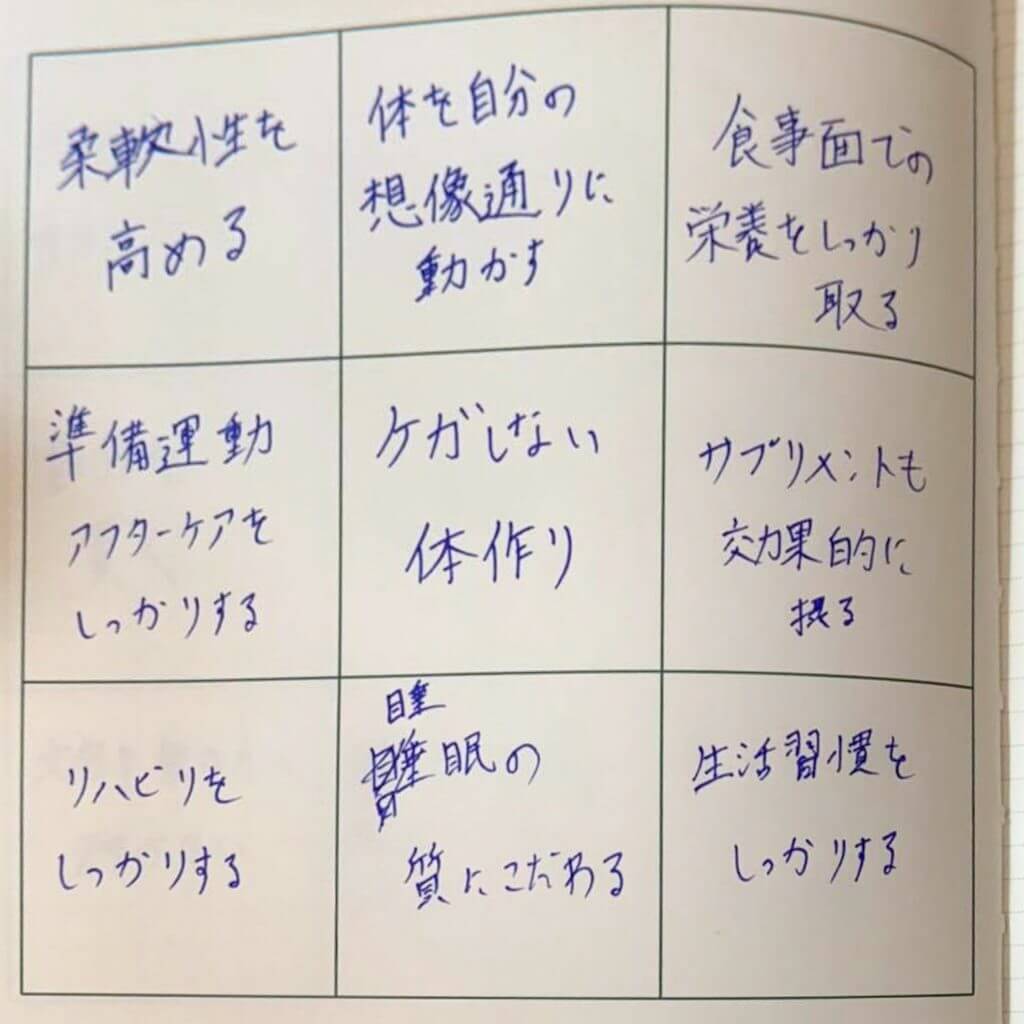 柔軟性を
高める
体を自分の
想像通りに
動かす
食事面での
栄養をしっかり
取る
準備運動
アフターケアを
しっかりする
ケガしない
体作り
サプリメントも
効果的に
摂る
リハビリを
しっかりする
睡
眠の
質にこだわる
生活習慣を
しっかりする